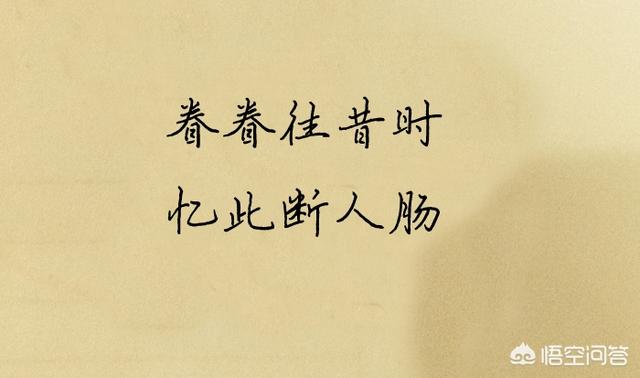 眷眷往昔时
忆此断人肠
悟空问答